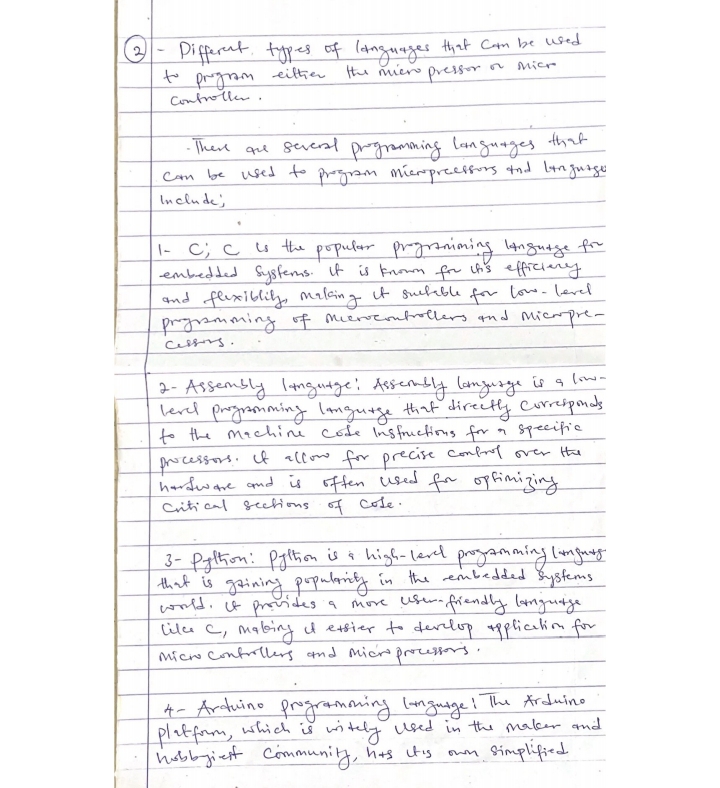 2 - Different types of languages that can be used
to program either the micro pressor or micro
controller.
- There are several programming languages that
can be used to program microprecessors and language
Include;
1- C; C is the popular programiming language for
embedded systems. it is known for it's efficiency
and flexiblity, making it suitable for low-level
programming of microcontrollers and micropre-
cessors.
2- Assembly language: Assembly language is a low-
level programming language that directly corresponds
to the machine code instructions for a specific
processors. it allow for precise control over the
hardware and is often used for optimizing
critical sections of code.
3- Python: Python is a high-level programming languag
that is gaining popularity in the embedded systems
world. it provides a more user-friendly language
like C, making it easier to develop application for
micro controllers and micro processors.
4- Arduino programming language: The Arduino
platform, which is witely used in the maker and
hobbyiest community, has it's own simplified